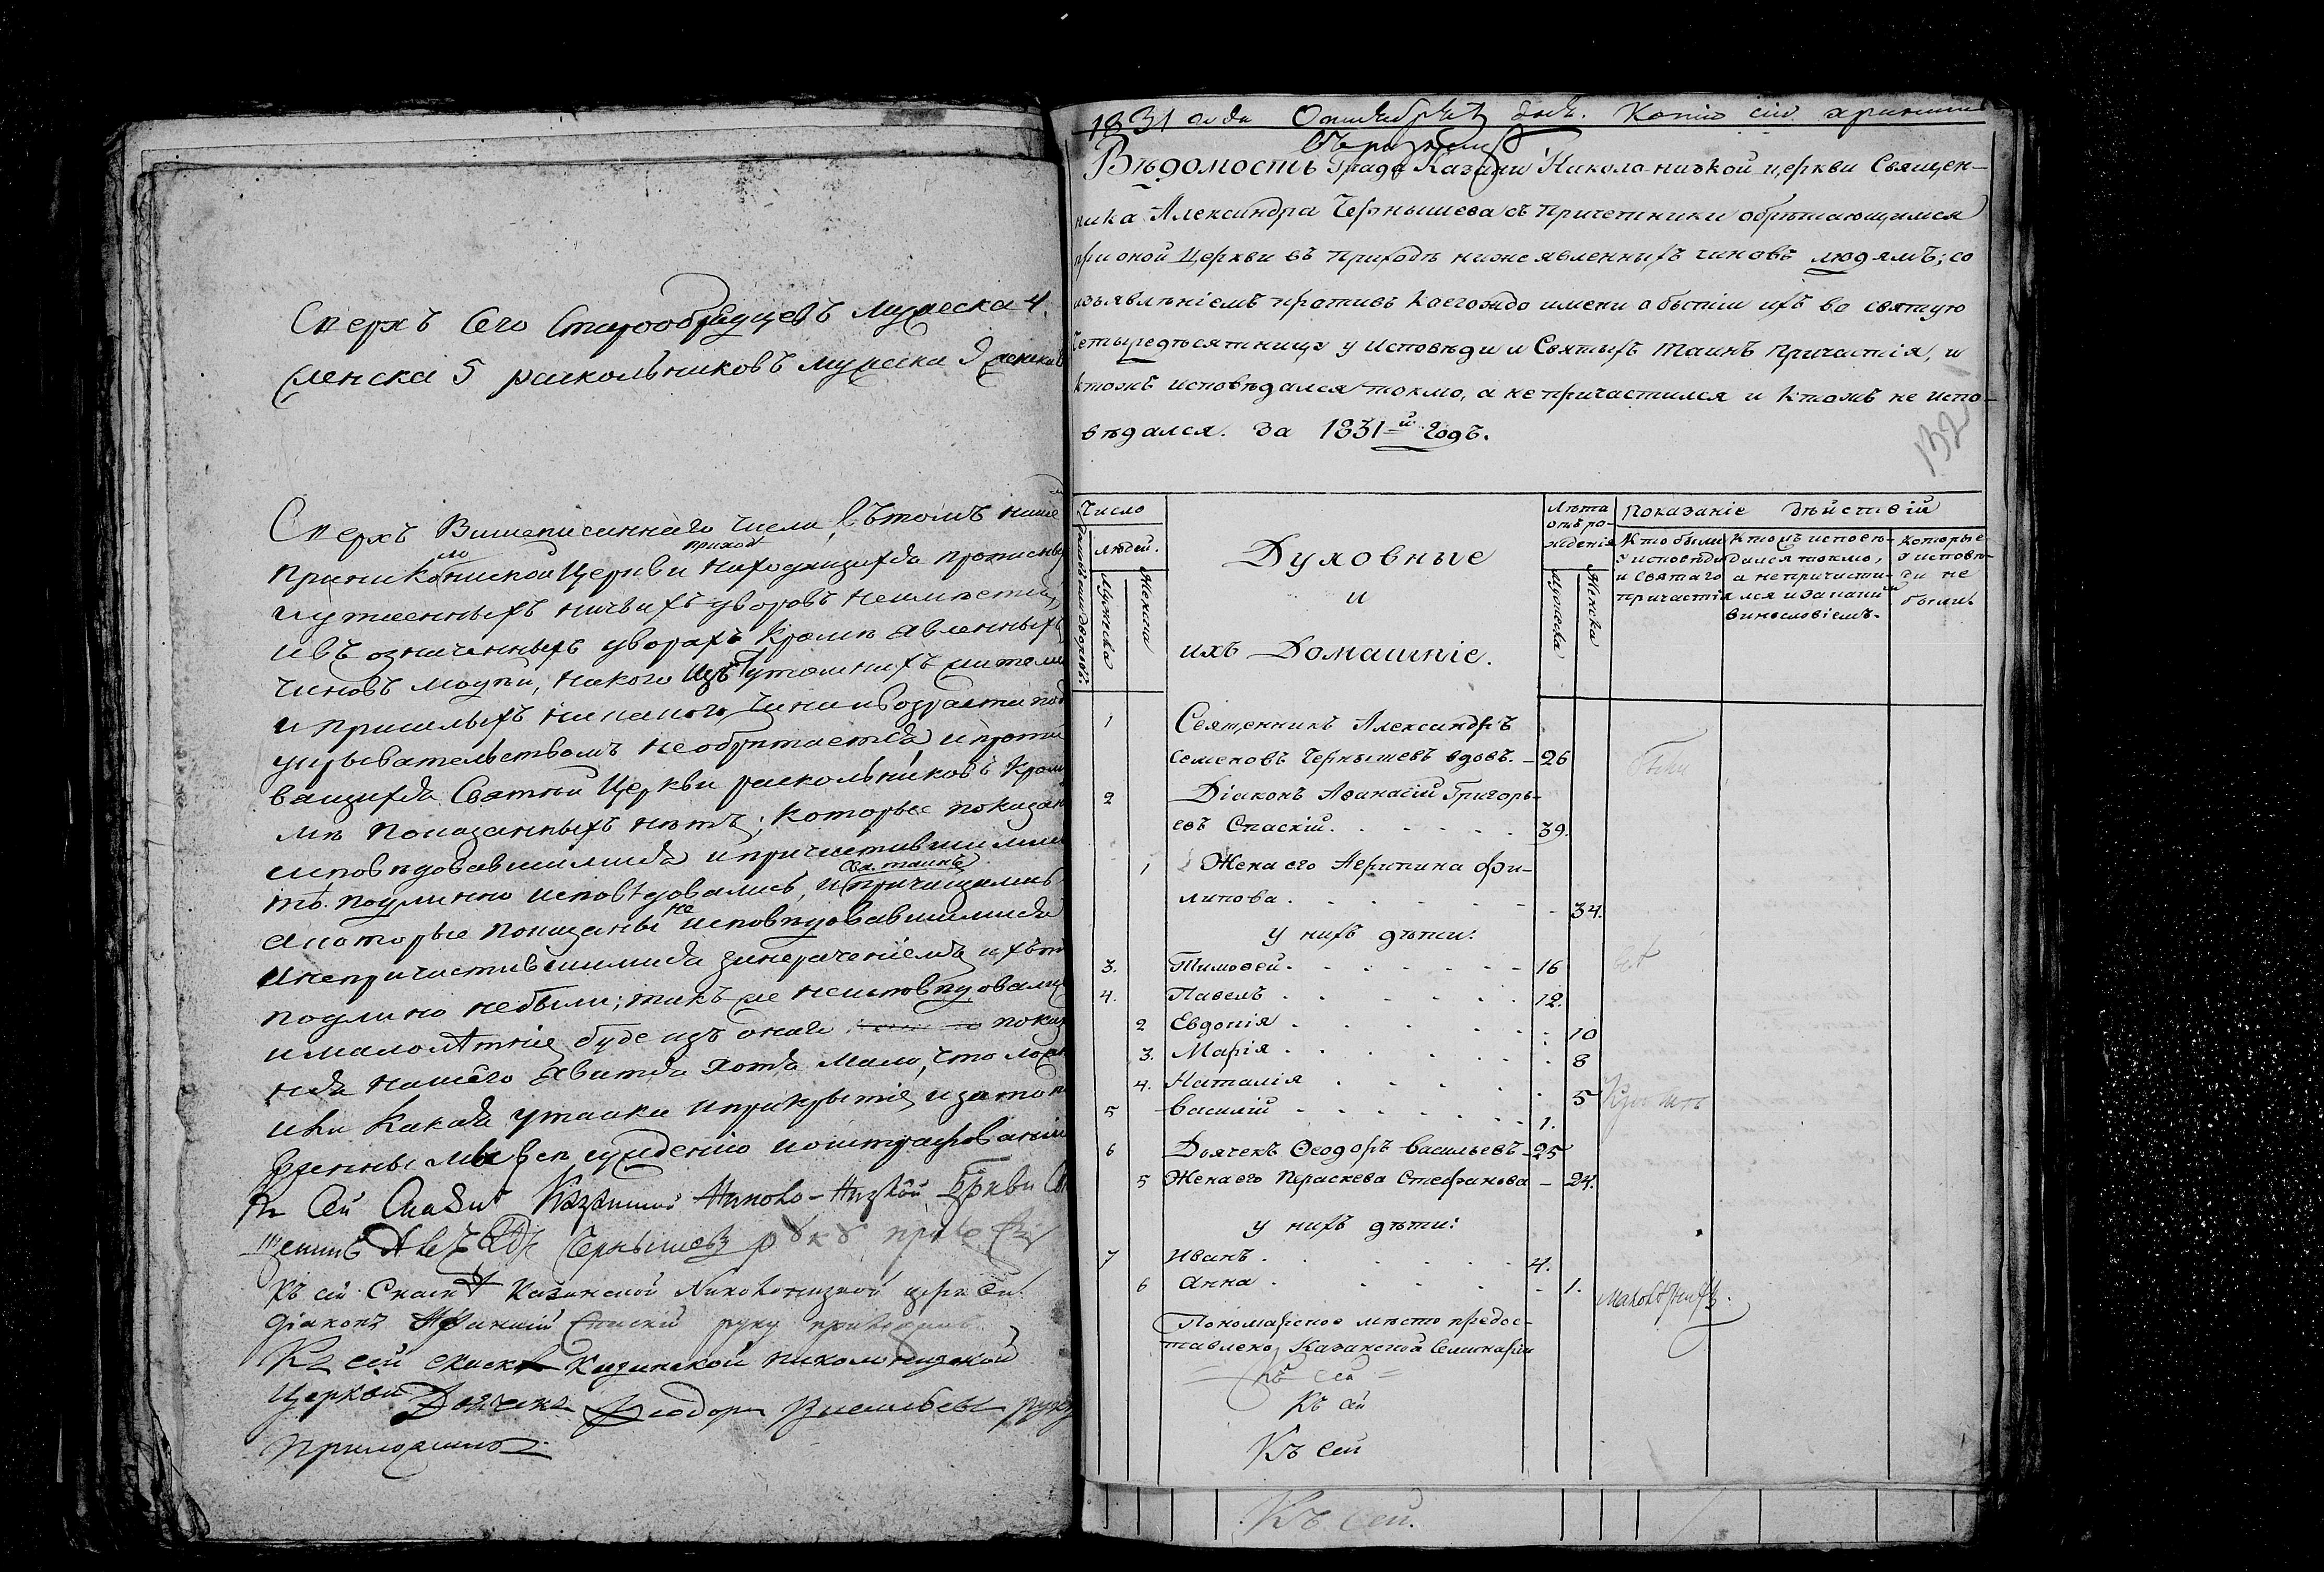 Сверхъ сего Старообрядцевъ мужеска 4.
женска 5 раскольниковъ мужеска 9 женска
Сверхъ Вышеписаннаго числа, въ томъ наше
при Николо низской Церкви приходѣ находящихся прописны
утаенныхъ ничьихъ дворовъ неимѣется,
и въ означенныхъ дворахъ кромѣ явленныхъ
чиновъ людей, никого изъ тутошнихъ жителе
и пришлыхъ никакого чина и возраста под
укрывательствомъ необрѣтается, и проти
вящихся Святой Церкви раскольниковъ кром
мѣ показанныхъ нѣтъ; которые показан
исповѣдовавшимися и причастившимис
тѣ подлинно исповѣдовались, и Свя. таинъ причащались
а которые показаны не исповѣдовавшимися
и непричастившимися за нерачениемъ ихъ т
подлинно небыли; такъ же неисповѣдовали
и малолѣтние, буде изъ онаго показ
ния нашего явится хотя мало, что ложн
или какая утайка и прикрытие, и за то п
винны мы суждению и оштрафованию
Къ сей Сказкѣ Казанской Николо-Низкой Церкви Св
щенникъ Александръ Чернышевъ руку приложилъ
Къ сей Сказкѣ Казанской Николонизкой церкви
діаконъ Афанасій Спаскій руку приложилъ
Къ сей сказкѣ Казанской николонизской
Церкви Дьячекъ Феодоръ Васильевъ руку
Приложилъ.
1831 года Октября дня. Копію сію хранить
Вѣдомость Града Казани Николо-низкой церкви Священ-
ника Александра Чернышева съ причетники обрѣтающимся
при оной Церкви въ приходѣ нижеявленныхъ чиновъ людямъ; со
изъявленіемъ противъ коегождо имени о бытіи ихъ во святую
четыредесятницу у исповѣди и Святыхъ Таинъ Причастія, и
ктожъ исповѣдался токмо, а не причастился и ктожъ не испо-
вѣдался. За 1831-й Годъ.
132
Число
людей.
Мужеска
Женска
Духовные
и
ихъ Домашніе.
Лѣта
отъ ро-
жденія
Мужеска
Женска
Показаніе дѣйствій
Кто были
у исповѣди
и святаго
причастія
Ктожъ исповѣ-
дался токмо,
а не причасти-
лся и за какимъ
винословіемъ.
Которые
у исповѣ-
ди не
были.
1 Священникъ Александръ
Семеновъ Чернышевъ вдовъ. - 26 были
2 Діаконъ Афанасій Григорь-
евъ Спаскій. 39.
1 Жена его Агрипина Фи-
липова. 34.
у нихъ дѣти:
3. Тимофей. 16
4. Павелъ. 12.
2 Евдокія. 10
3. Марія. 8
4. Наталія. 5
5 Василій 1.
6 Дьячекъ Феодоръ Васильевъ - 25
5 Жена его Параскева Стефанова - 24.
у нихъ дѣти:
7 Иванъ. 4.
6 Анна. 1. малолѣтны.
Пономарское мѣсто предос-
тавлено Казанской Семинаріи
Къ сей
Къ сей
Къ сей
Къ сей.